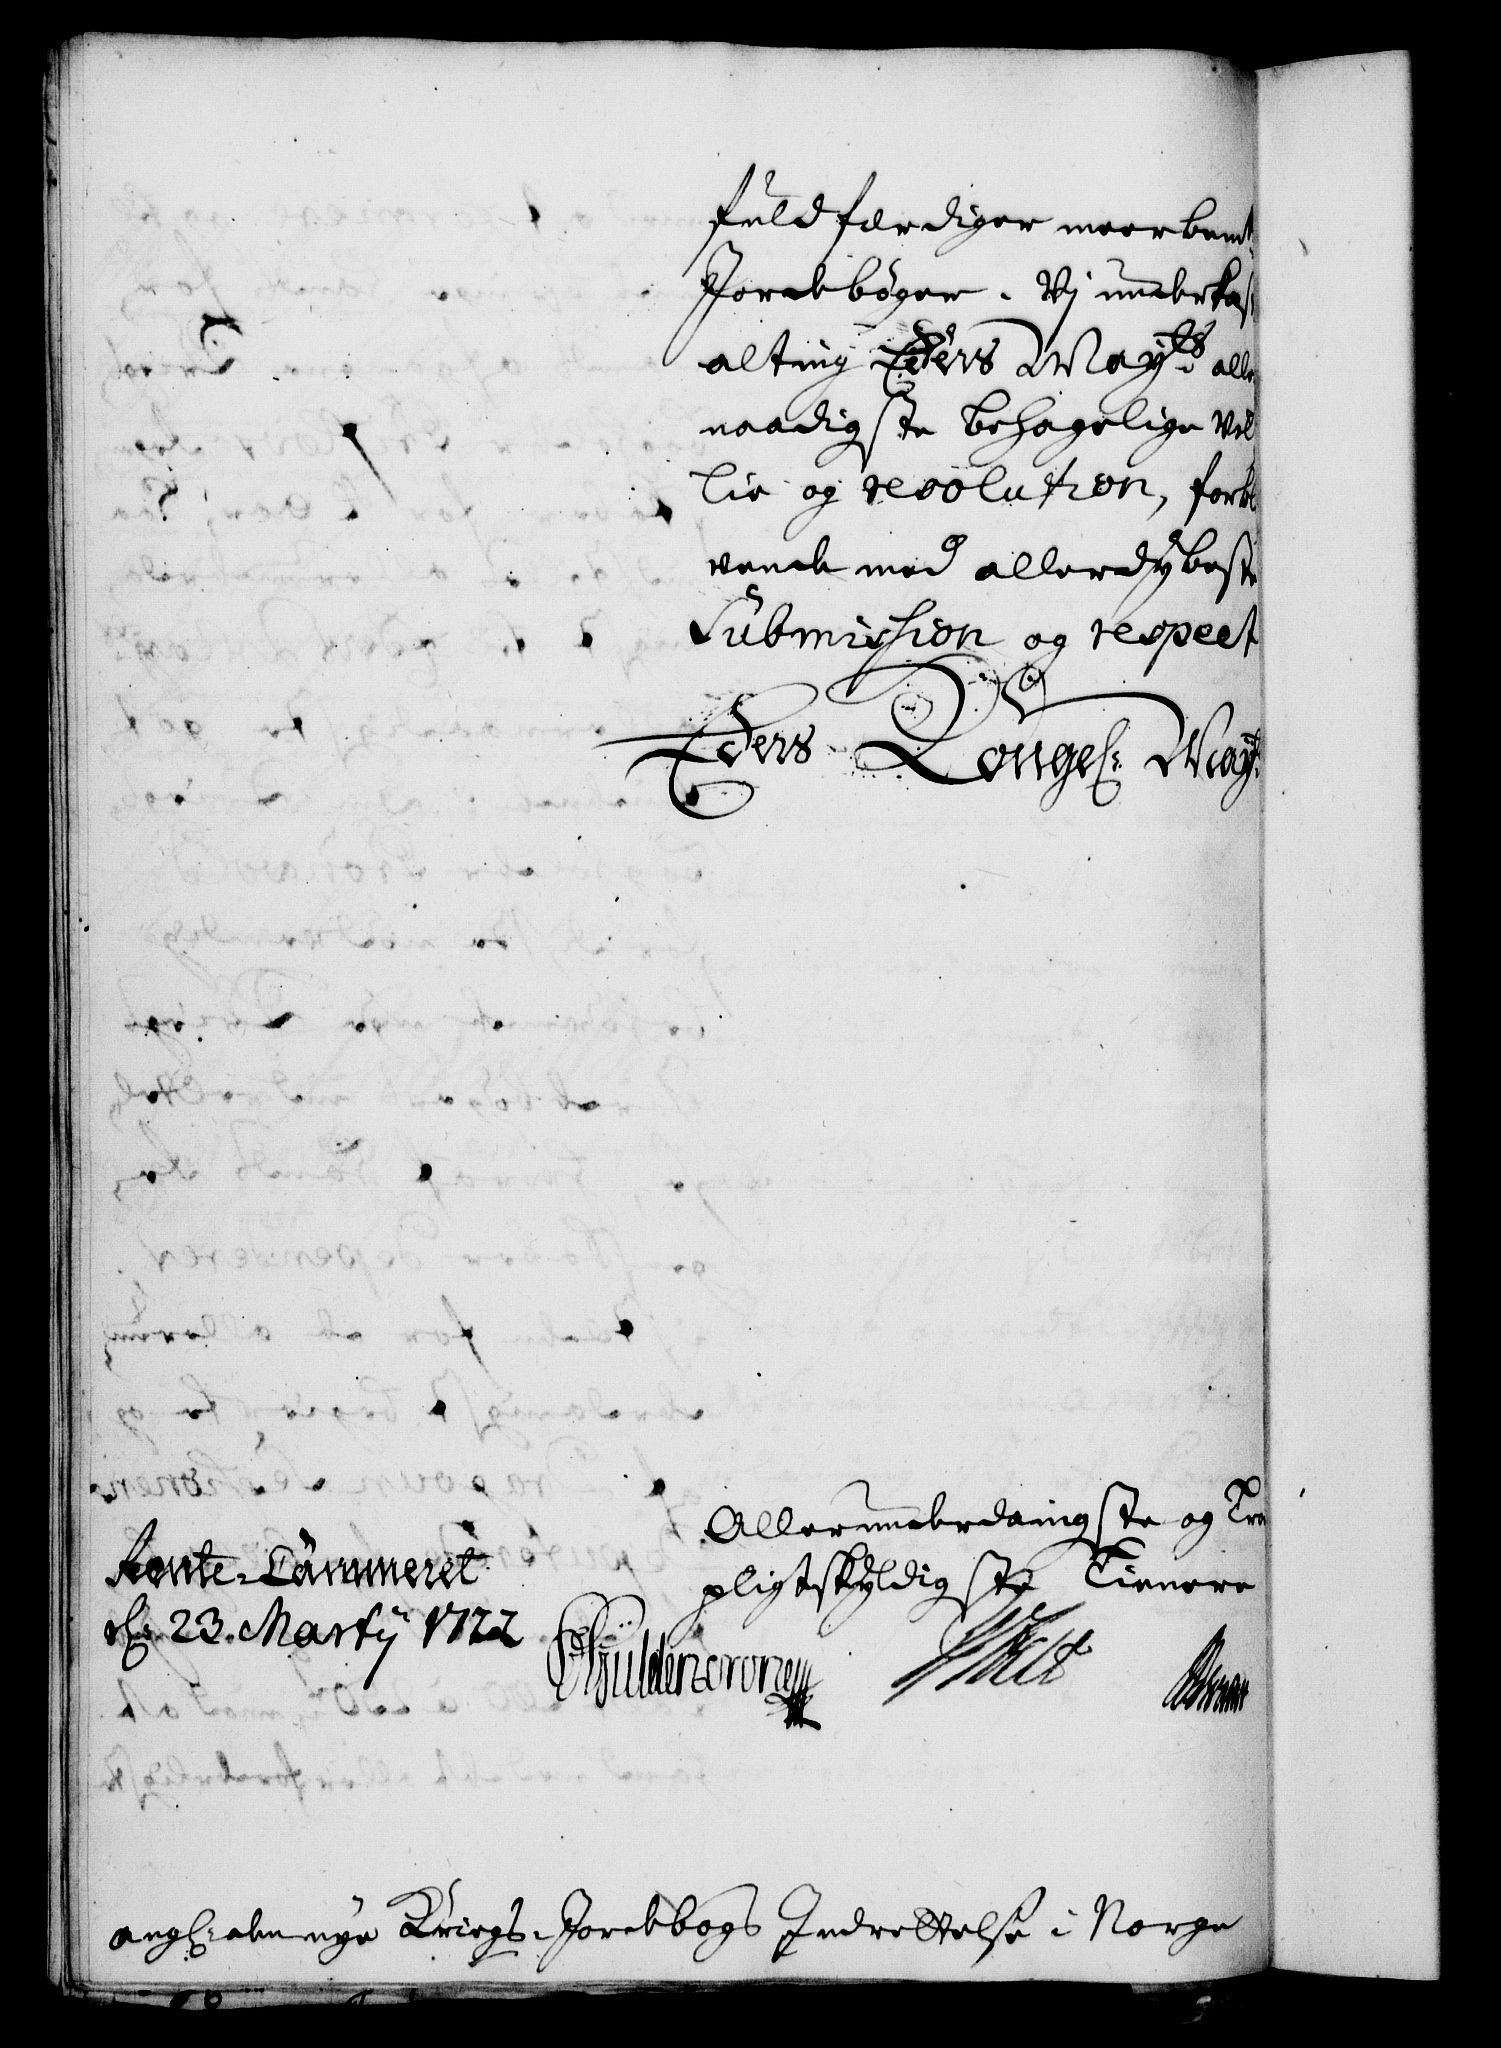 fuldfærdiger meerbemt
Jordebøger. Vj underkast
alting Eders Mayts aller
naadigste behagelige Vil
lie og resolution, forbl
vende med allerdybeste
Submission og respect
Eders Kongel: Mayt:
Allerunderdanigste og Tro
pligtskyldigste Tienere
Rente-Cammeret
d: 23 Martij 1722
Güldencrone
angl: den nye Kriegs-Jordebogs Indrettelse i Norge